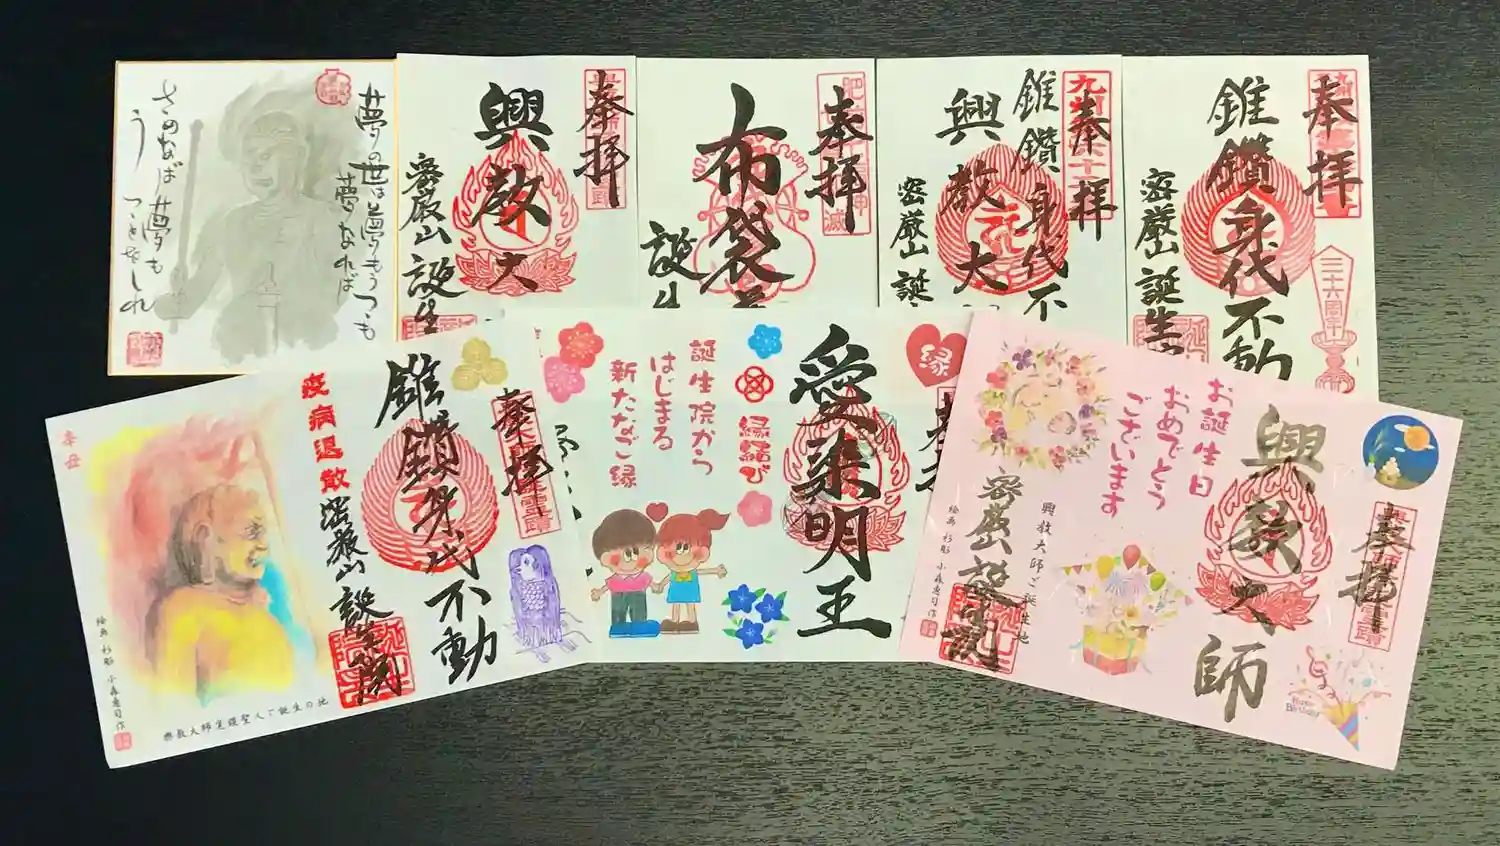 夢の世は夢もうつつも
夢なれば
さめなば夢も
うつつとなしれ
奉拝
興教大
密厳山 誕生
奉拝
布袋
誕生
奉拝
錐鑚身代不
興教大
密厳山 誕
奉拝
三十六
錐鑚身代不動
密厳山 誕生
奉拝
錐鑚身代不動
疫病退散
密厳山 誕生院
辛丑
絵画 杉彫 小森惠司作
興教大師覚鑁聖人ご誕生の地
縁
愛染明王
縁結び
誕生院から
はじまる
新たなご縁
奉拝
興教大師
お誕生日
おめでとう
ございます
興教大師ご誕生地
密厳山 誕生院
絵画 杉彫 小森惠司作
Happy
Birthday